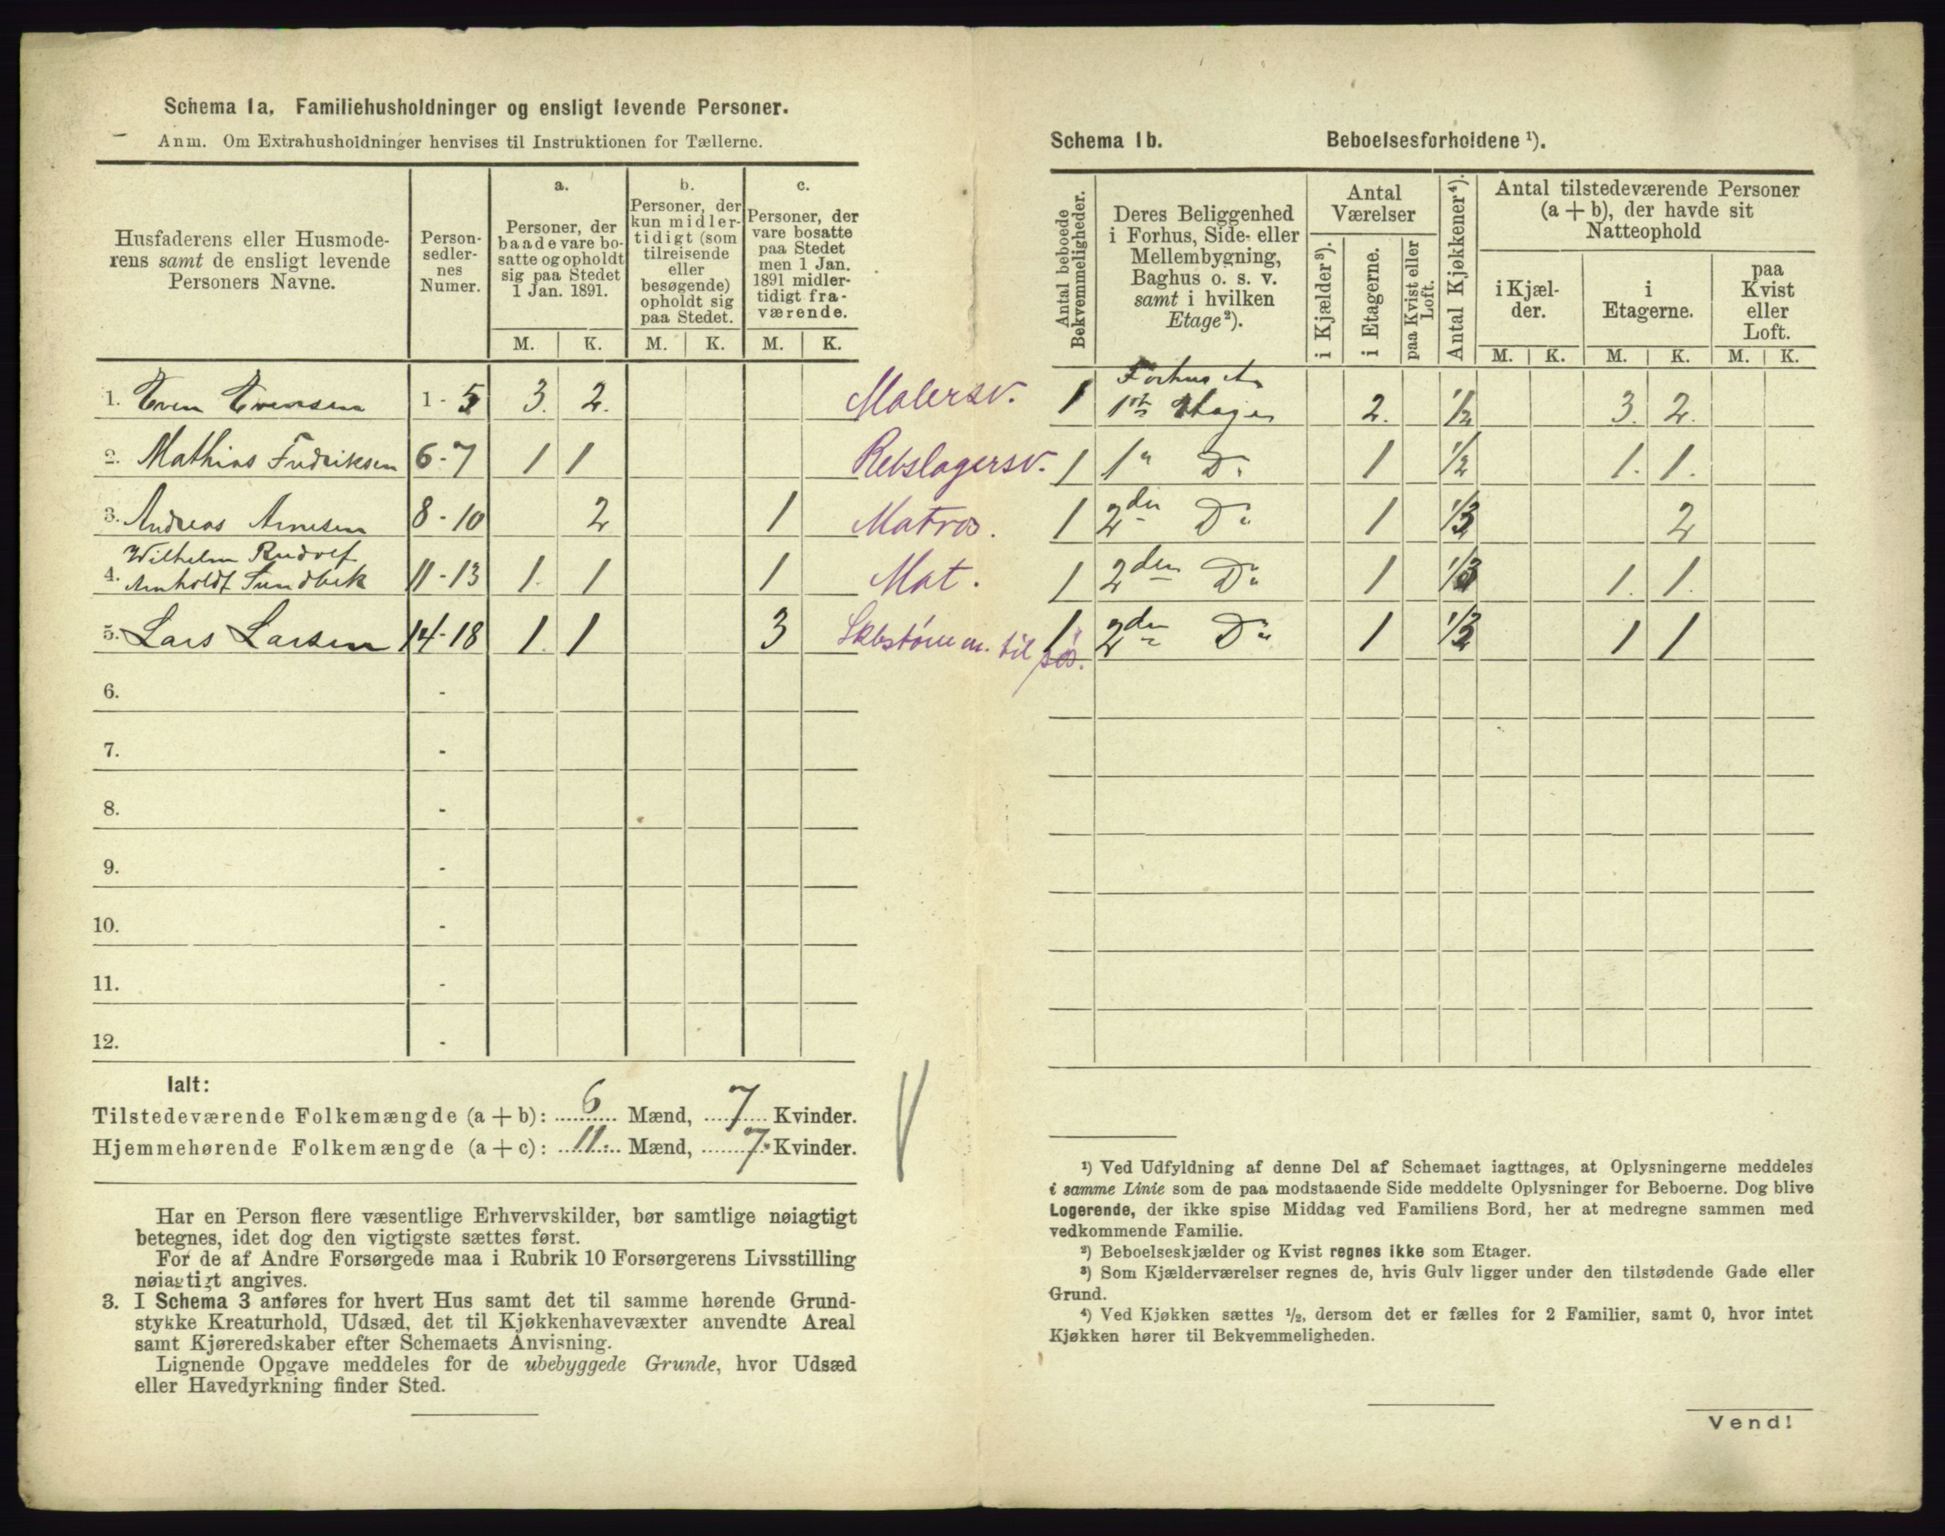 Schema 1a. Familiehusholdninger og ensligt levende Personer.
Anm. Om Extrahusholdninger henvises til Instruktionen for Tællerne.
Husfaderens eller Husmoderens samt de ensligt levende Personers Navne.
Personsedlernes Numer.
a. Personer, der baade vare bosatte og opholdt sig paa Stedet 1 Jan. 1891.
b. Personer, der kun midlertidigt (som tilreisende eller besøgende) opholdt sig paa Stedet.
c. Personer, der vare bosatte paa Stedet men 1 Jan. 1891 midlertidigt fraværende.
M. K. M. K. M. K.
1. Even Evensen 1 - 5 3. 2. Malersv.
2. Mathias Fredriksen 6 - 7 1 1 Rebslagersv.
3. Andreas Arnesen 8 - 10 2 1 Matros.
4. Wilhelm Rudolf Arnholdt Sundbek 11 - 13 1. 1 1 Mat.
5. Lars Larsen 14 - 18 1. 1 3 til søs.
6. -
7. -
8. -
9. -
10. -
11. -
12. -
Ialt:
Tilstedeværende Folkemængde (a + b): 6 Mænd, 7 Kvinder.
Hjemmehørende Folkemængde (a + c): 11. Mænd, 7. Kvinder.
Har en Person flere væsentlige Erhvervskilder, bør samtlige nøiagtigt
betegnes, idet dog den vigtigste sættes først.
For de af Andre Forsørgede maa i Rubrik 10 Forsørgerens Livsstilling
nøiagtigt angives.
3. I Schema 3 anføres for hvert Hus samt det til samme hørende Grund-
stykke Kreaturhold, Udsæd, det til Kjøkkenhavevæxter anvendte Areal
samt Kjøreredskaber efter Schemaets Anvisning.
Lignende Opgave meddeles for de ubebyggede Grunde, hvor Udsæd
eller Havedyrkning finder Sted.
Schema 1b. Beboelsesforholdene ¹).
Antal beboede Bekvemmeligheder.
Deres Beliggenhed i Forhus, Side- eller Mellembygning, Baghus o. s. v. samt i hvilken Etage²).
Antal Værelser
i Kjælder³).
i Etagerne.
paa Kvist eller Loft.
Antal Kjøkkener⁴).
Antal tilstedeværende Personer (a + b), der havde sit Natteophold
i Kjælder.
i Etagerne.
paa Kvist eller Loft.
M. K. M. K. M. K.
1 Forhus 1ste Etage 2. 1/2 3. 2.
1 1" D" 1 1/2 1. 1.
1 2den D" 1 1/3 2
1 2den D" 1 1/3 1. 1.
1 2den D" 1 1/3 1 1
¹) Ved Udfyldning af denne Del af Schemaet iagttages, at Oplysningerne meddeles
i samme Linie som de paa modstaaende Side meddelte Oplysninger for Beboerne. Dog blive
Logerende, der ikke spise Middag ved Familiens Bord, her at medregne sammen med
vedkommende Familie.
²) Beboelseskjælder og Kvist regnes ikke som Etager.
³) Som Kjælderværelser regnes de, hvis Gulv ligger under den tilstødende Gade eller
Grund.
⁴) Ved Kjøkken sættes ½, dersom det er fælles for 2 Familier, samt 0, hvor intet
Kjøkken hører til Bekvemmeligheden.
Vend!